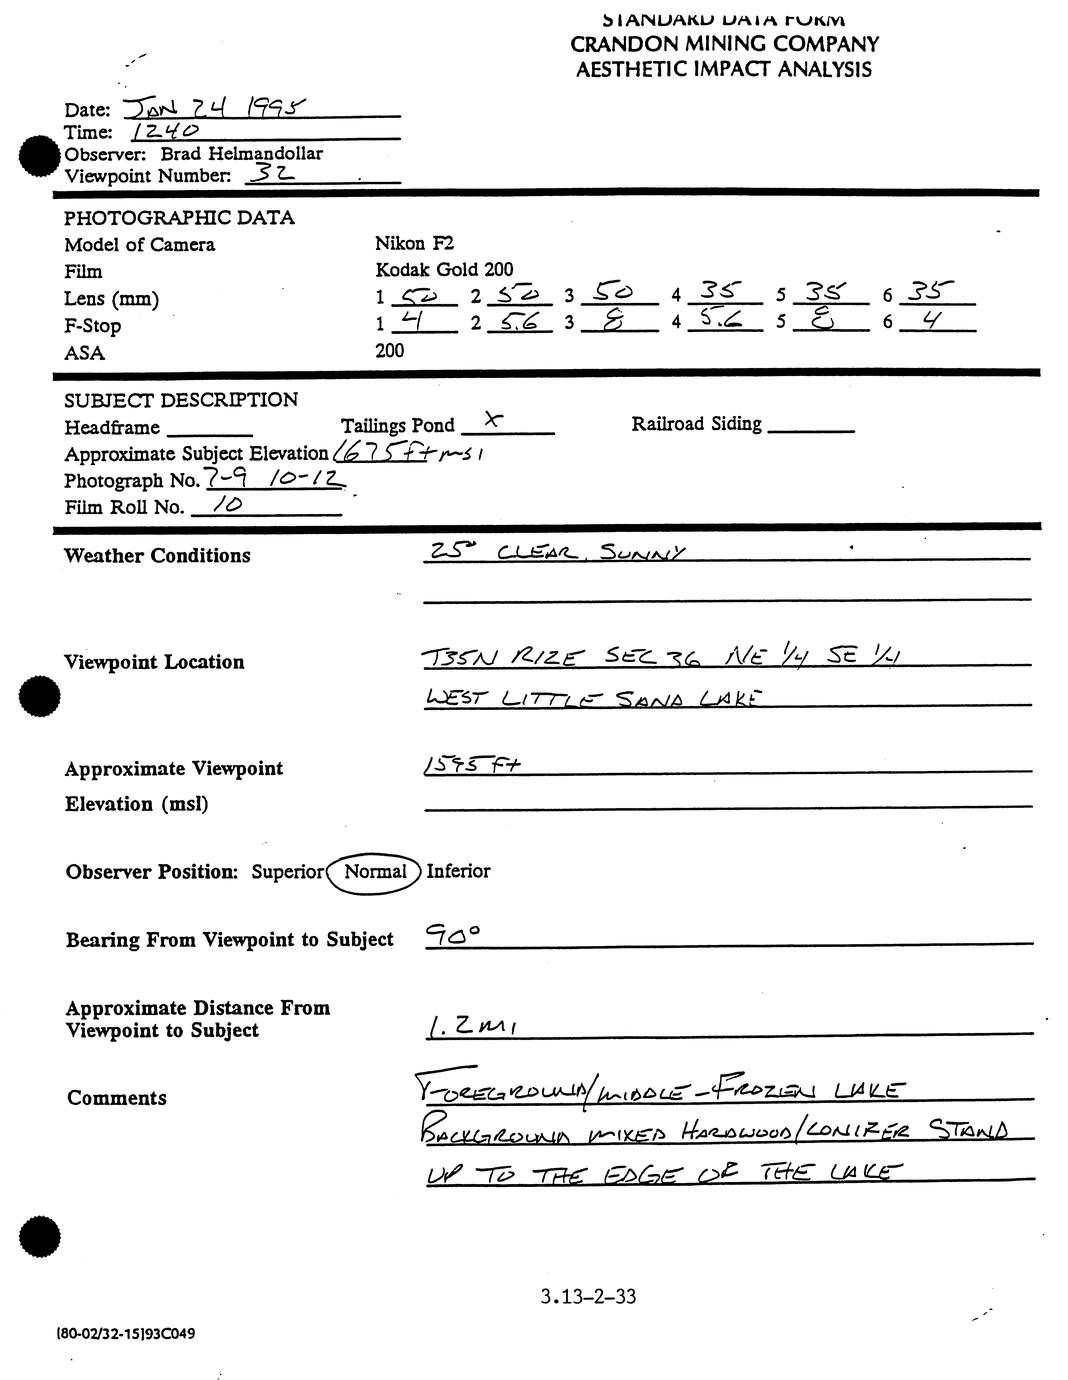 STANDARD DATA FORM
CRANDON MINING COMPANY
AESTHETIC IMPACT ANALYSIS
Date: JAN 24 1995
Time: 1240
Observer: Brad Helmandollar
Viewpoint Number: 32
PHOTOGRAPHIC DATA
Model of Camera Nikon F2
Film Kodak Gold 200
Lens (mm) 1 50 2 50 3 50 4 35 5 35 6 35
F-Stop 1 4 2 5.6 3 8 4 5.6 5 8 6 4
ASA 200
SUBJECT DESCRIPTION
Headframe Tailings Pond X Railroad Siding
Approximate Subject Elevation 1675 ft msl
Photograph No. 7-9 10-12
Film Roll No. 10
Weather Conditions 25° CLEAR, SUNNY
Viewpoint Location T35N R12E SEC 36 NE 1/4 SE 1/4
WEST LITTLE SAND LAKE
Approximate Viewpoint 1595 ft
Elevation (msl)
Observer Position: Superior Normal Inferior
Bearing From Viewpoint to Subject 90°
Approximate Distance From
Viewpoint to Subject 1.2 MI
Comments FOREGROUND/MIDDLE - FROZEN LAKE
BACKGROUND MIXED HARDWOOD/CONIFER STAND
UP TO THE EDGE OF THE LAKE
3.13-2-33
[80-02/32-15]93C049